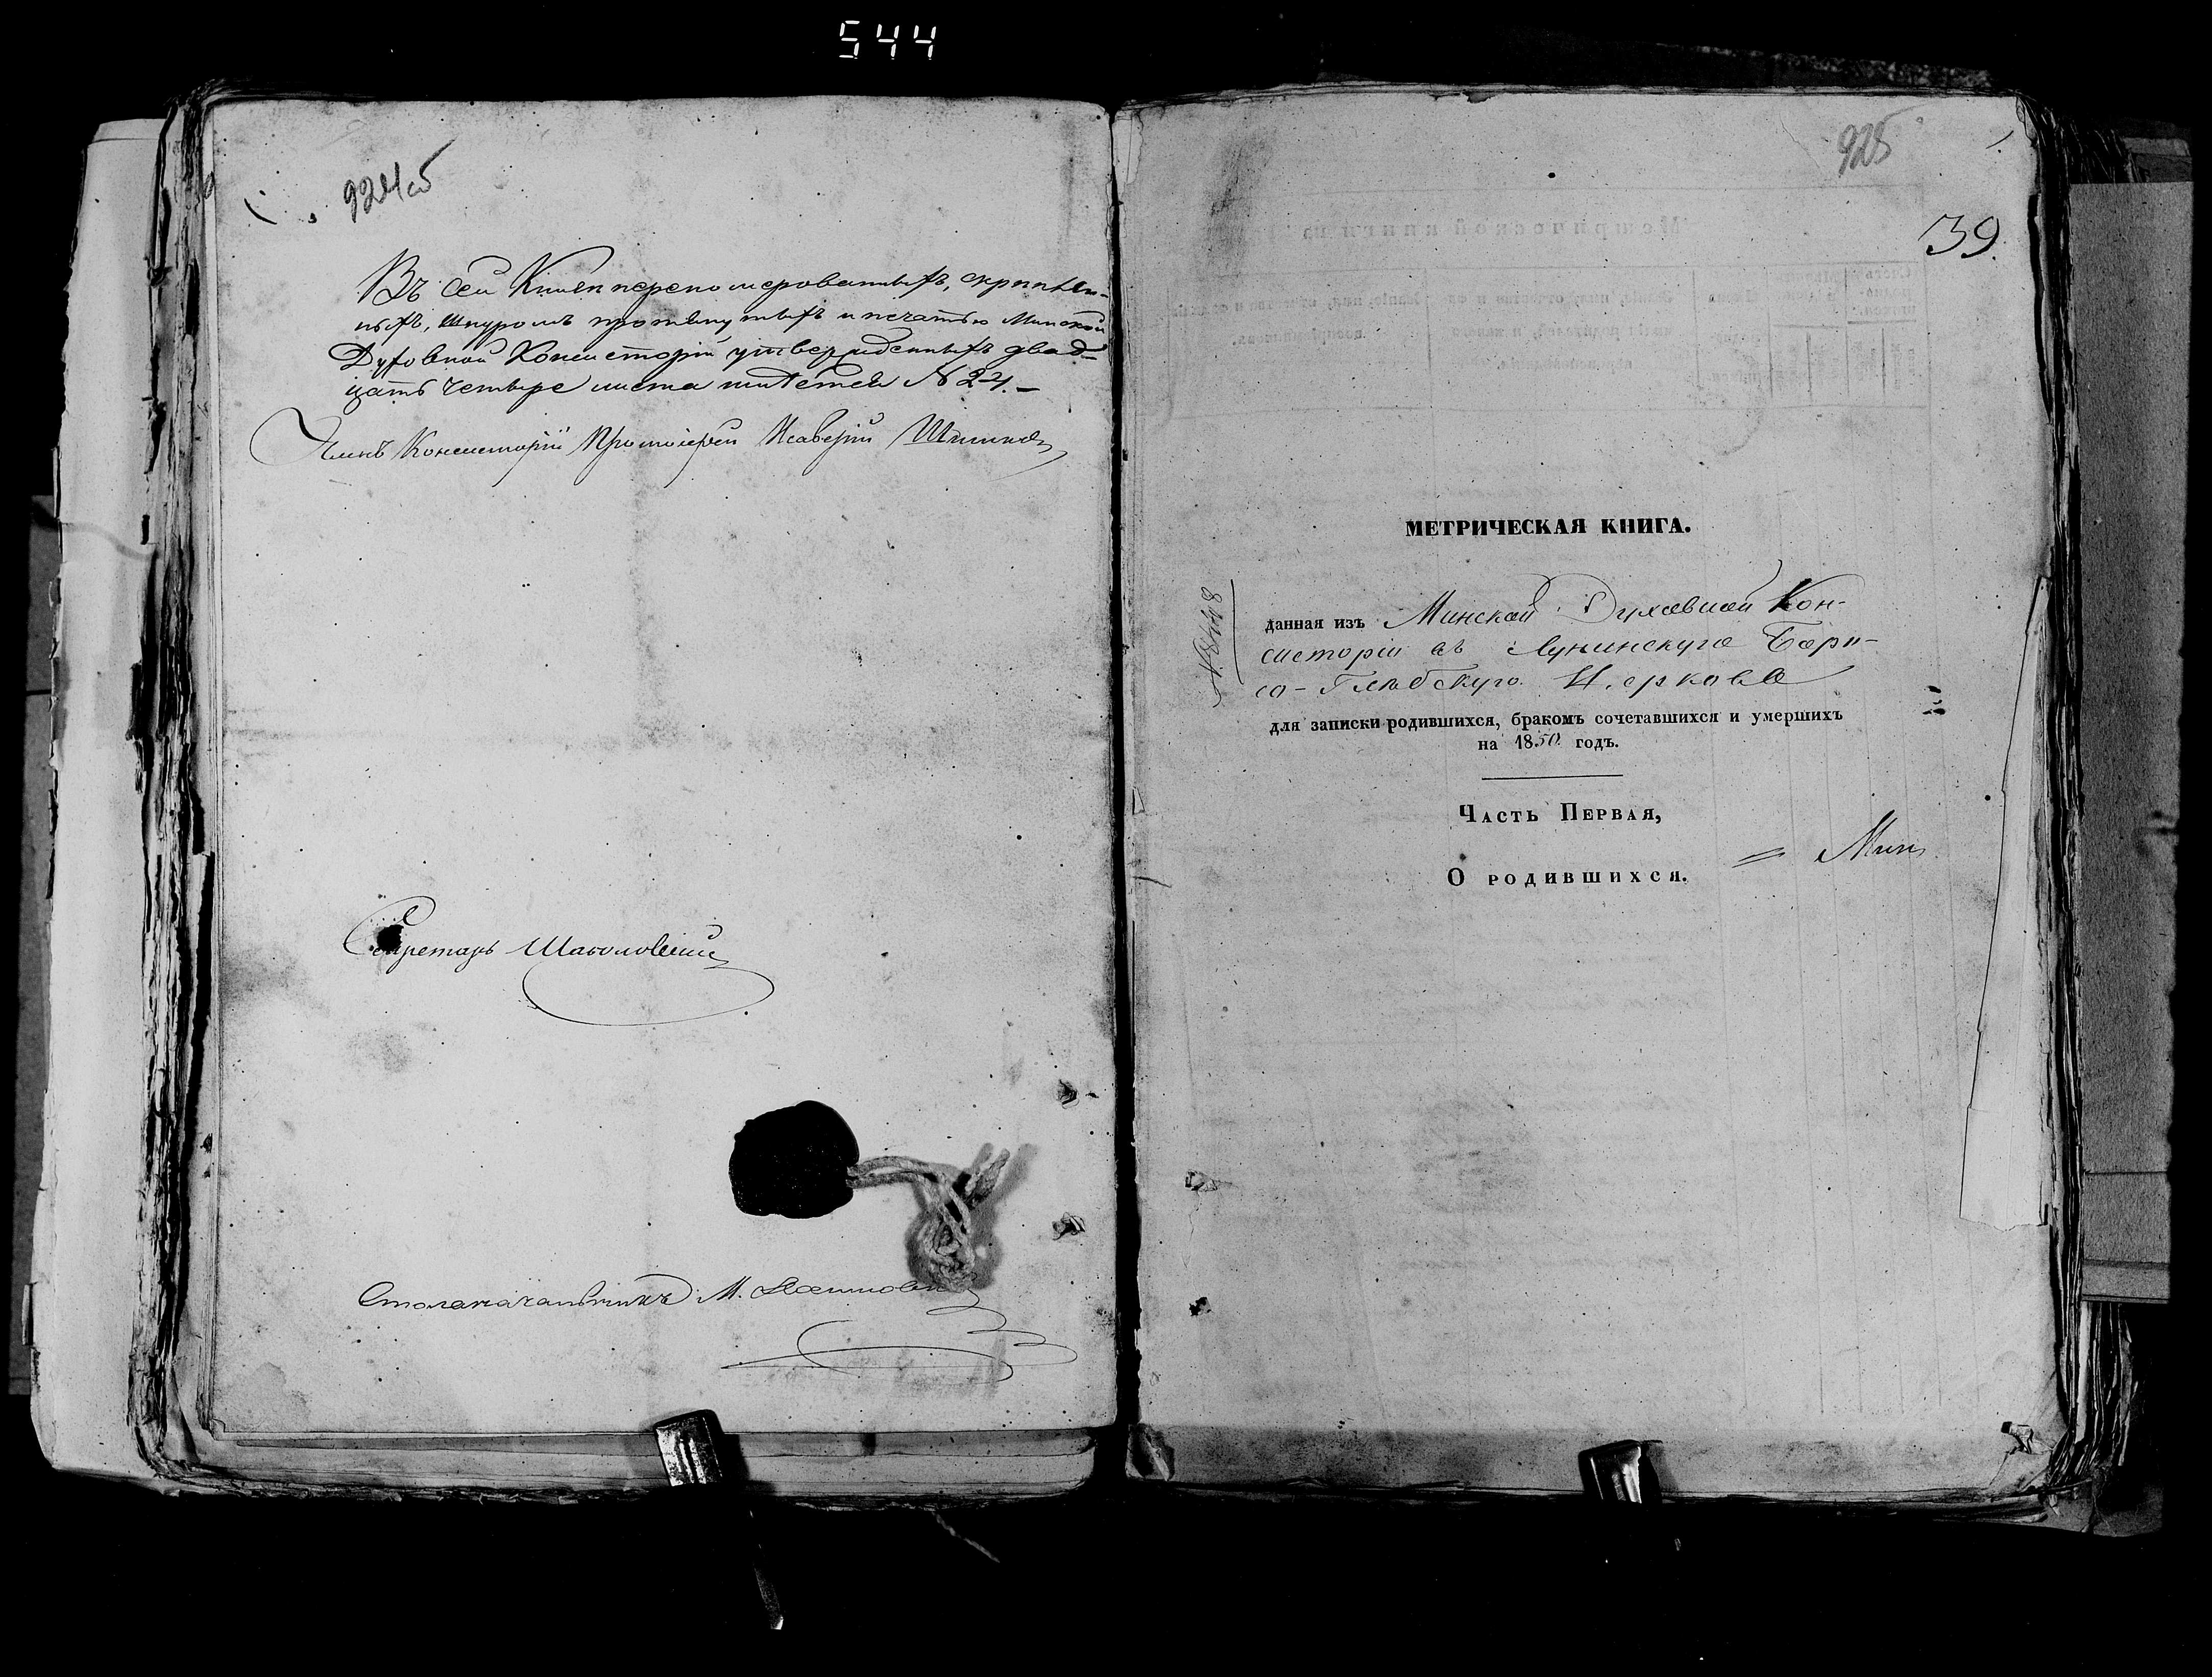 544
924об
Въ сей Книгѣ перенумерованныхъ, скрѣплен-
ныхъ, шнуромъ протянутыхъ и печатью Минской
Духовной Консисторіи утвержденныхъ двад-
цать четыре листа имѣетъ N 24. –
Членъ Консисторіи Протоіерей Ксаверій
Секретарь
Столоначальникъ М.
925
39.
МЕТРИЧЕСКАЯ КНИГА.
данная изъ Минской Духовной Кон-
систоріи въ Лунинскую Бори-
со-Глѣбскую Церковь
для записки родившихся, бракомъ сочетавшихся и умершихъ
на 1850 годъ.
Часть Первая,
О родившихся.